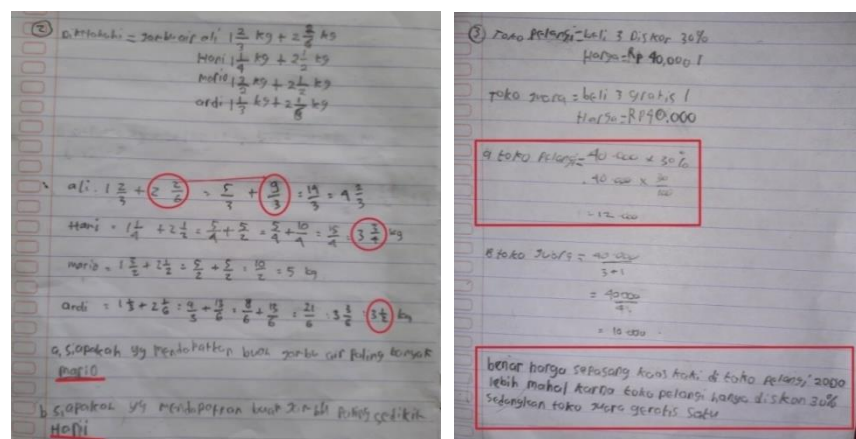 ② Diketahui = jambu air ali 1 2/3 kg + 2 2/6 kg
Hari 1 1/4 kg + 2 1/2 kg
mario kg + 2 1/2 kg
ardi 1 1/3 kg + 2 1/6 kg
ali. 1 2/3 + 2 2/6 = 5/3 + 9/3 = 14/3 = 4
Hari = 1 1/4 + 2 1/2 = 5/4 + 5/2 = 5/4 + 10/4 = 15/4 = 3 3/4 kg
mario = + 2 1/2 = 5/2 + 5/2 = 10/2 = 5 kg
ardi = 1 1/3 + 2 1/6 = + 13/6 = 8/6 + 13/6 = 21/6 = 3 3/6 = 3 1/2 kg
a. siapakah yg mendapatkan buah jambu air paling banyak
mario
b. siapakah yg mendapatkan buah jambu paling sedikit
Hari
③ Toko Pelangi = beli 3 Diskon 30%
Harga = Rp 40.000
Toko suara = beli 3 gratis 1
Harga = RP 40.000
a toko pelangi = 40 000 x 30%
= 40 000 x 30/100
= 12 000
B toko suara = 40 000 / 3+1
= 40000 / 4
= 10 000
benar harga sepasang kaos kaki di toko pelangi 2000
lebih mahal karna toko pelangi hanya diskon 30%
sedangkan toko suara geratis satu